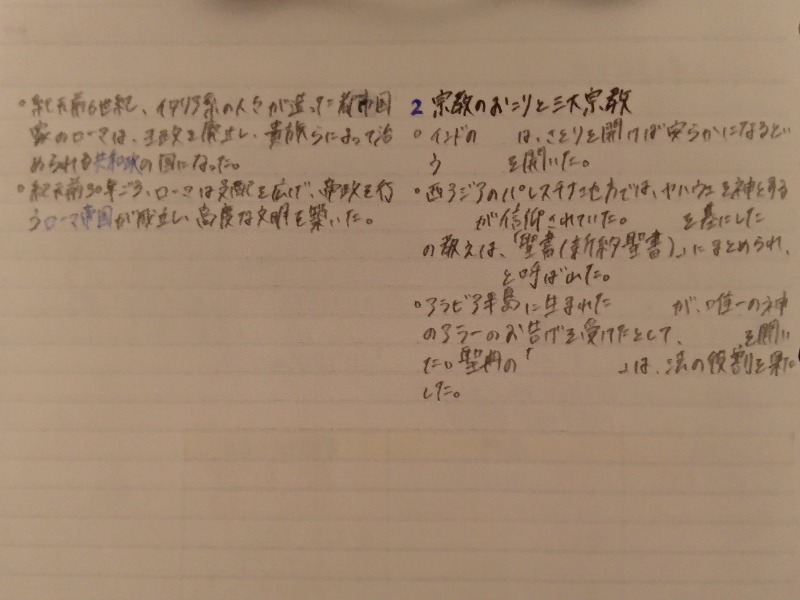 ・紀元前6世紀、イタリア系の人々が造った都市国
家のローマは、王政を廃止し、貴族らによって治
められる共和政の国になった。
・紀元前30年ごろ、ローマは支配を広げ、帝政を行
うローマ帝国が成立し、高度な文明を築いた。
2 宗教のおこりと三大宗教
・インドの は、さとりを開けば安らかになるとい
う を開いた。
・西アジアのパレスチナ地方では、ヤハウェを神とする
が信仰されていた。 を基にした
の教えは、「聖書(新約聖書)」にまとめられ、
と呼ばれた。
・アラビア半島に生まれた が、唯一の神
のアラーのお告げを受けたとして、 を開い
た。聖典の「 」は、法の役割を果た
した。